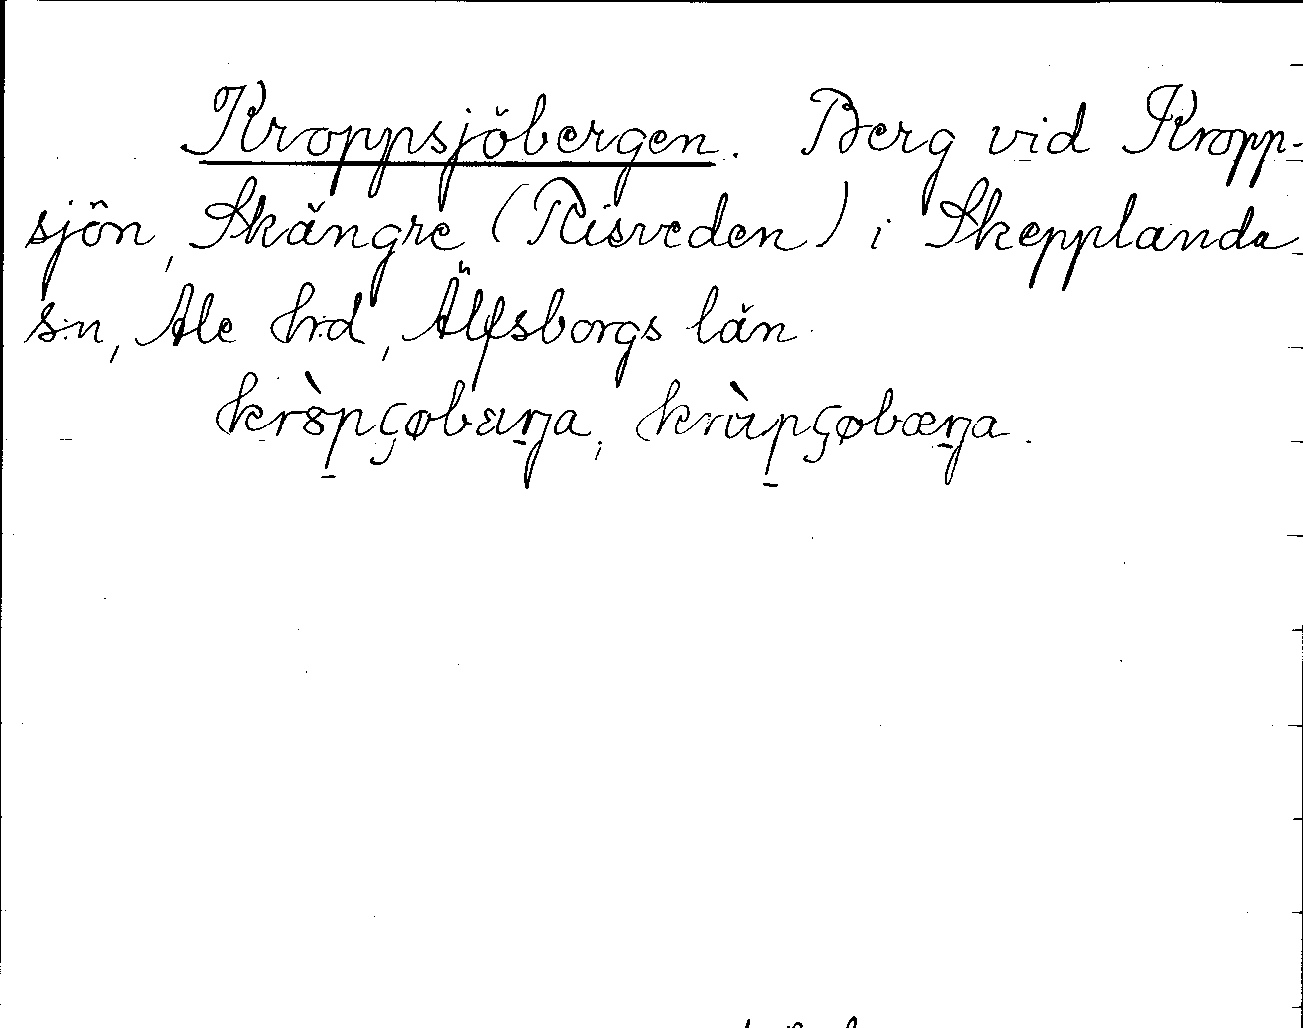 Kroppsjöbergen. Berg vid Kropp-
sjön, Skängre (Risveden) i Skepplanda
s:n, Ale hrd, Älfsborgs län
kròpçøbæŋa, kràpçøbæŋa.